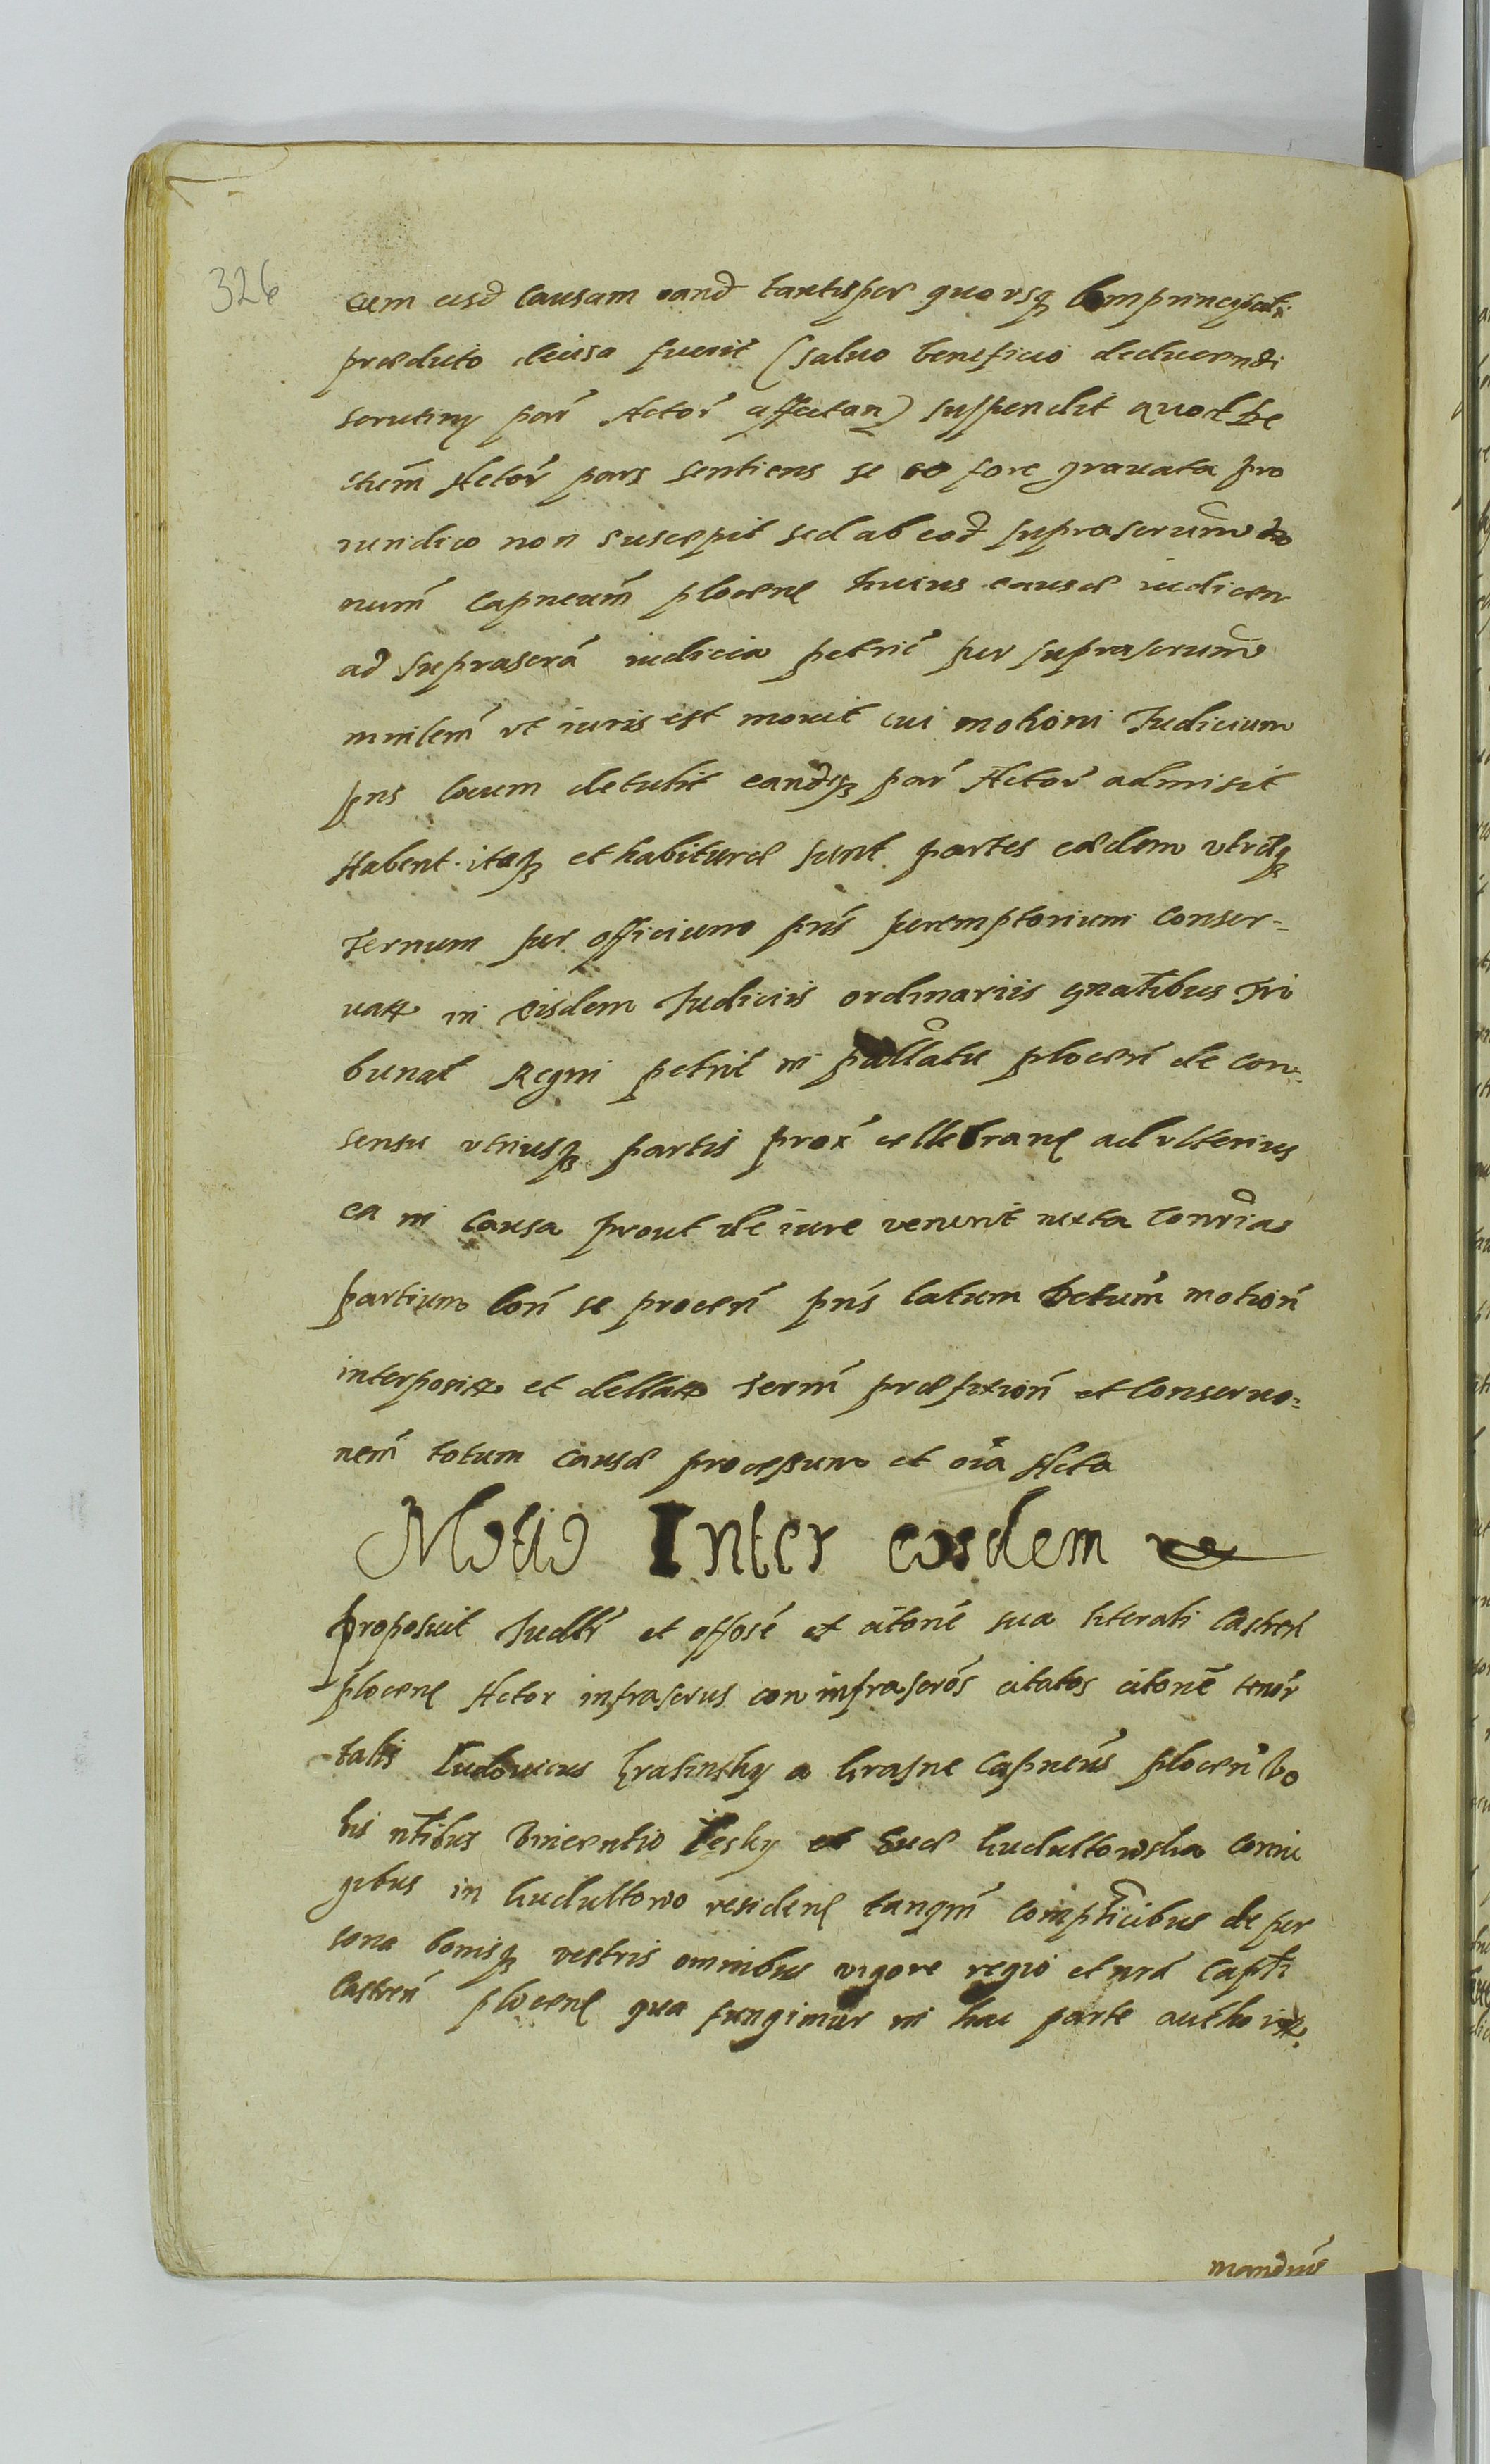 326
cum eisd causam eand tantisper quorsq comprincipali
præducto decisa fuerit (saluo beneficio deducendi
scrutiny par Actor affectan) suspendit quod de
ctum Actor pars sentiens se eo fore grauata pro
iuridico non suscepit sed ab eod suprascrum do
num Capneum plocen huius causæ iudicem
ad suprascra iudicia petric per suprascrum
mnilem vt iuris est mouit cui motioni Iudicium
pns locum detulit eandqz par Actor admisit
Habent itaqz et habituræ sunt partes eædem vtræqz
Ternum per officium pns peremptorium conser-
uatt in eisdem Iudiciis ordinariis gnalibus Tri
bunal Regni petric in pallatu plocen de con-
sensu vtriusqz partis prox cellebran ad vlterius
ea in causa prout de iure venerit iuxta conrias
partium con se proceri pns latum Dctum motion
interpositt et dellatt Term præfixion et conseruo-
nem totum causæ processum et oia Acta
Motio Inter eosdem
proposuit Iudlr et offose et citone sua literali Castren
plocen Actor infrascrus con infrascros citatos citone tenor
talis Ludouicus Krasinsky a Krasne Capneus plocen Vo
bis ntibus Vincentio Lesky et Suæ Kudultowska coniu
gibus in Kudultowo residen tanqm complicibus de per
sona bonisqz vestris omnibus vigore regio et nra Capti
Castren plocen qua fungimur in hac parte authoritt
mandmus